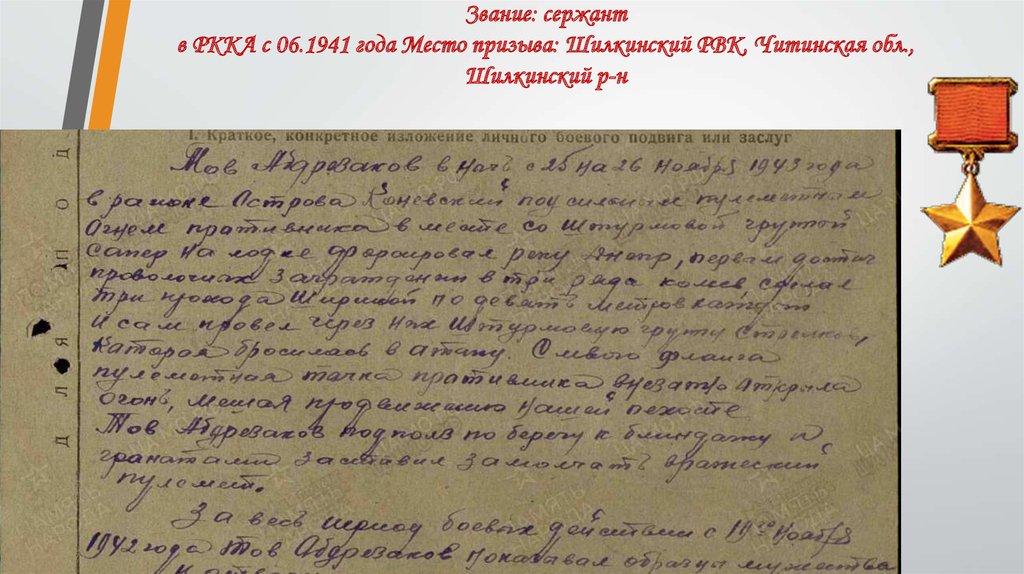 Звание: сержант
в РККА с 06.1941 года Место призыва: Шилкинский РВК, Читинская обл.,
Шилкинский р-н
I. Краткое, конкретное изложение личного боевого подвига или заслуг
Тов Абдрезаков в ночь с 25 на 26 ноября 1943 года
в районе Острова "Коневский" под сильным пулеметным
Огнем пративника в месте со Штурмовой групой
сапер на лодке форсировал реку Днепр, первым достиг
проволочных заграждении в три ряда колев сделал
три прохода Шириной по девять метров каждой
и сам провел через них Штурмовую групу стрелков,
Каторая бросилась в атаку. С левого фланга
пулеметная точка пративника внезапно аткрыла
огонь, мешая продвижению нашей пехоте
Тов Абдрезаков подполз по берегу к блиндажу и
гранатами заставил замолчать вражеский
пулемет.
За весь период боевых действии с 19го Ноября
1942 года Тов Абдрезаков показывал образцы мужества
ДЛЯ ПОД